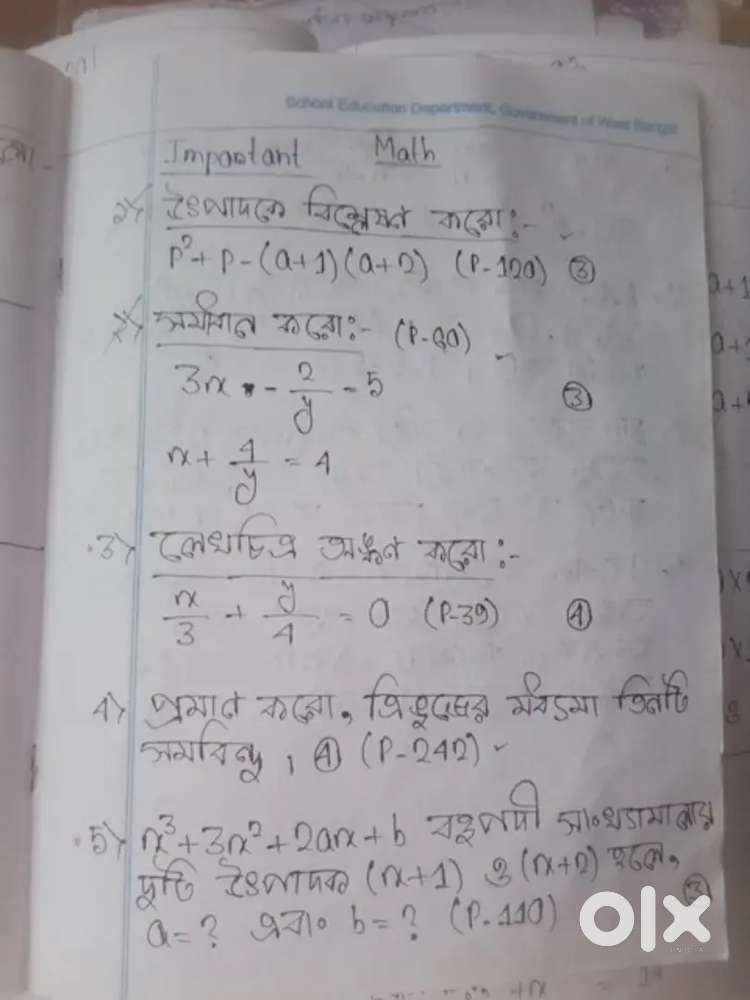 School Education Department, Government of West Bengal
Impoatant Math
১) উৎপাদকে বিশ্লেষণ করো:-
p²+p-(a+1)(a+2) (P-120) ③
২) সমাধান করো:- (P-60)
3x - 2/y = 5 ③
x + 4/y = 4
3) লেখচিত্র অঙ্কন করো:-
x/3 + y/4 = 0 (P-39) ④
4) প্রমাণ করো, ত্রিভুজের মধ্যমা তিনটি
সমবিন্দু। ④ (P-242)
5) x³+3x²+2ax+b বহুপদী সংখ্যামালার
দুটি উৎপাদক (x+1) ও (x+2) হলে,
a=? এবং b=? (P-110) ③
a+1
olx
INDIA